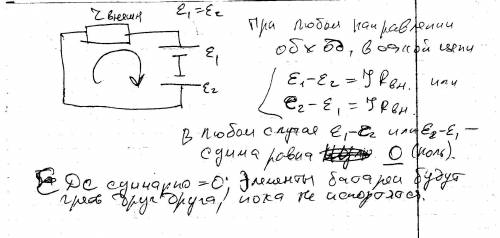 r внешн
ε1=ε2
ε1
ε2
При любом направлении
обхода, в одной цепи
ε1-ε2 = JRвн. или
ε2-ε1 = JRвн.
В любом случае ε1-ε2 или ε2-ε1 -
сумма равна 0 (ноль).
ЭДС суммарно =0; Элементы батареи будут
греть друг друга, пока не испортятся.